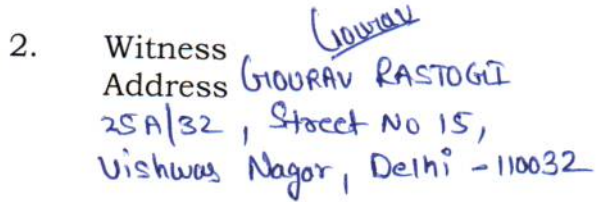 Gourav
2. Witness
Address GOURAV RASTOGI
25A/32, Street No 15,
Vishwas Nagar, Delhi - 110032